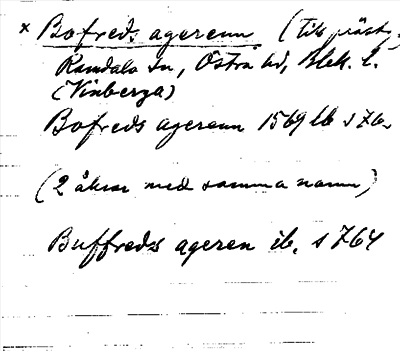 x Bofreds agerenn (till präst,
Ramdala sn, Östra hd, Blek. l.
(Vinberga)
Bofreds agerenn 1569 lb s 76.
(2 åkrar med samma namn)
Buffreds ageren ib. s 764